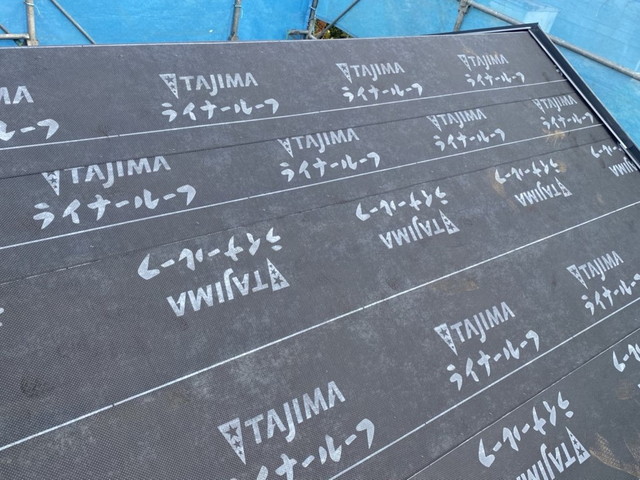 TAJIMA
TAJIMA
TAJIMA
ライナールーフ
ライナールーフ
ライナールーフ
TAJIMA
TAJIMA
TAJIMA
TAJIMA
ライナールーフ
ライナールーフ
ライナールーフ
ライナールーフ
ライナールーフ
ライナールーフ
ライナールーフ
TAJIMA
TAJIMA
TAJIMA
TAJIMA
TAJIMA
ライナールーフ
ライナールーフ
TAJIMA
ライナールーフ
ライナールーフ
TAJIMA